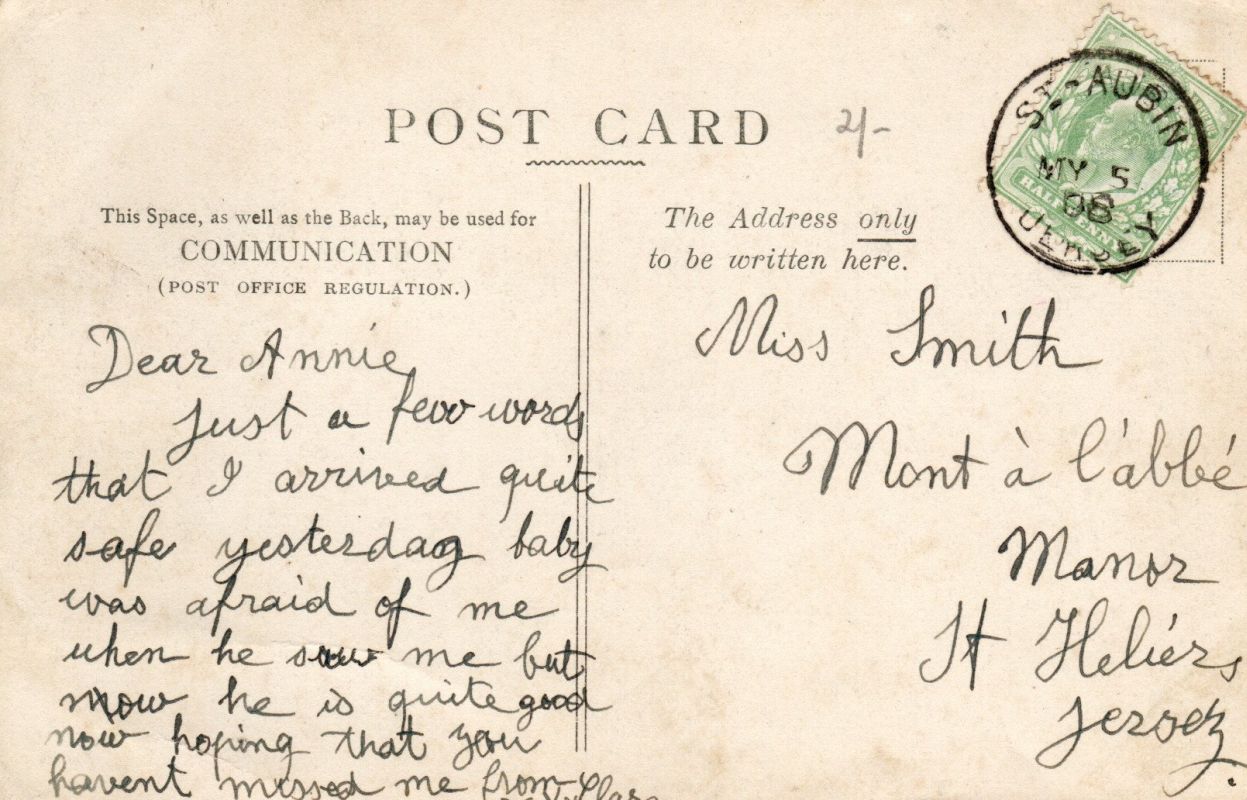 POST CARD
2/-
ST AUBIN
MY 5
08
JERSEY
HALF PENNY
This Space, as well as the Back, may be used for
COMMUNICATION
(POST OFFICE REGULATION.)
The Address only
to be written here.
Dear Annie
Just a few words
that I arrived quite
safe yesterday baby
was afraid of me
when he saw me but
now he is quite good
now hoping that you
havent missed me from
Miss Smith
Mont à l'abbé
Manor
St Heliérs
Jersey.